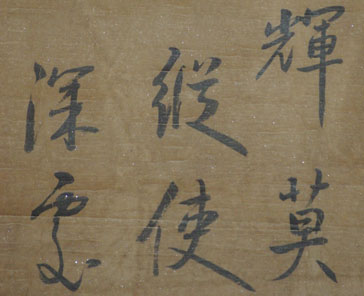 輝莫
縱使
深處